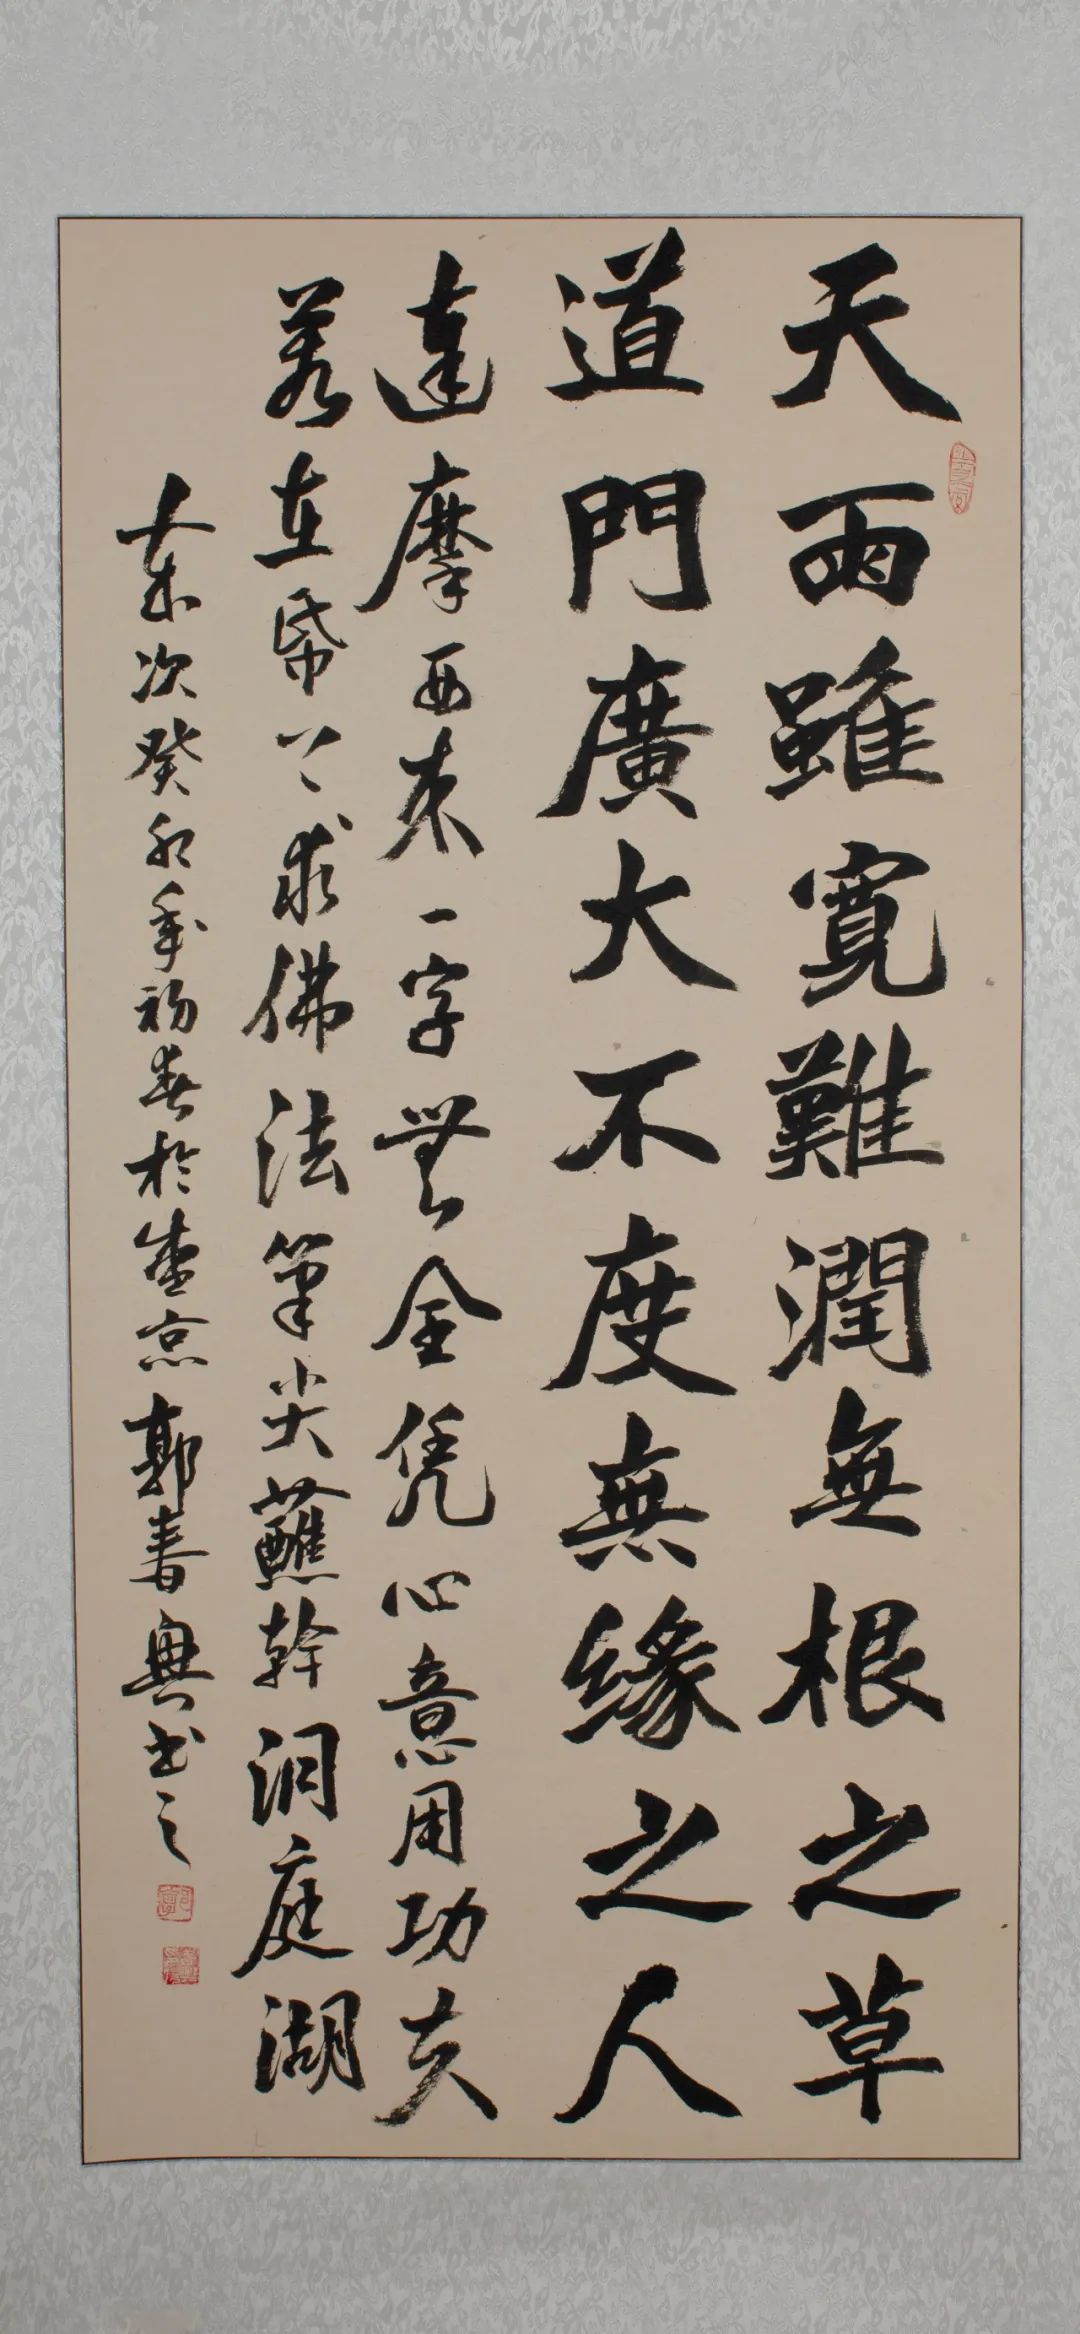 天雨雖寬難潤無根之草
道門廣大不度無緣之人
達摩西來一字無全凭心意用功夫
若在帋上求佛法筆尖蘸幹洞庭湖
歲次癸卯年初春於盛京郭春興书之